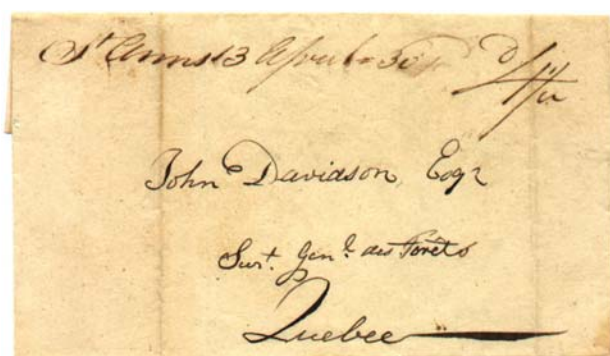 St Anns 13 April
John Davidson, Esqr
Surt. Genl. des Forêts
Quebec